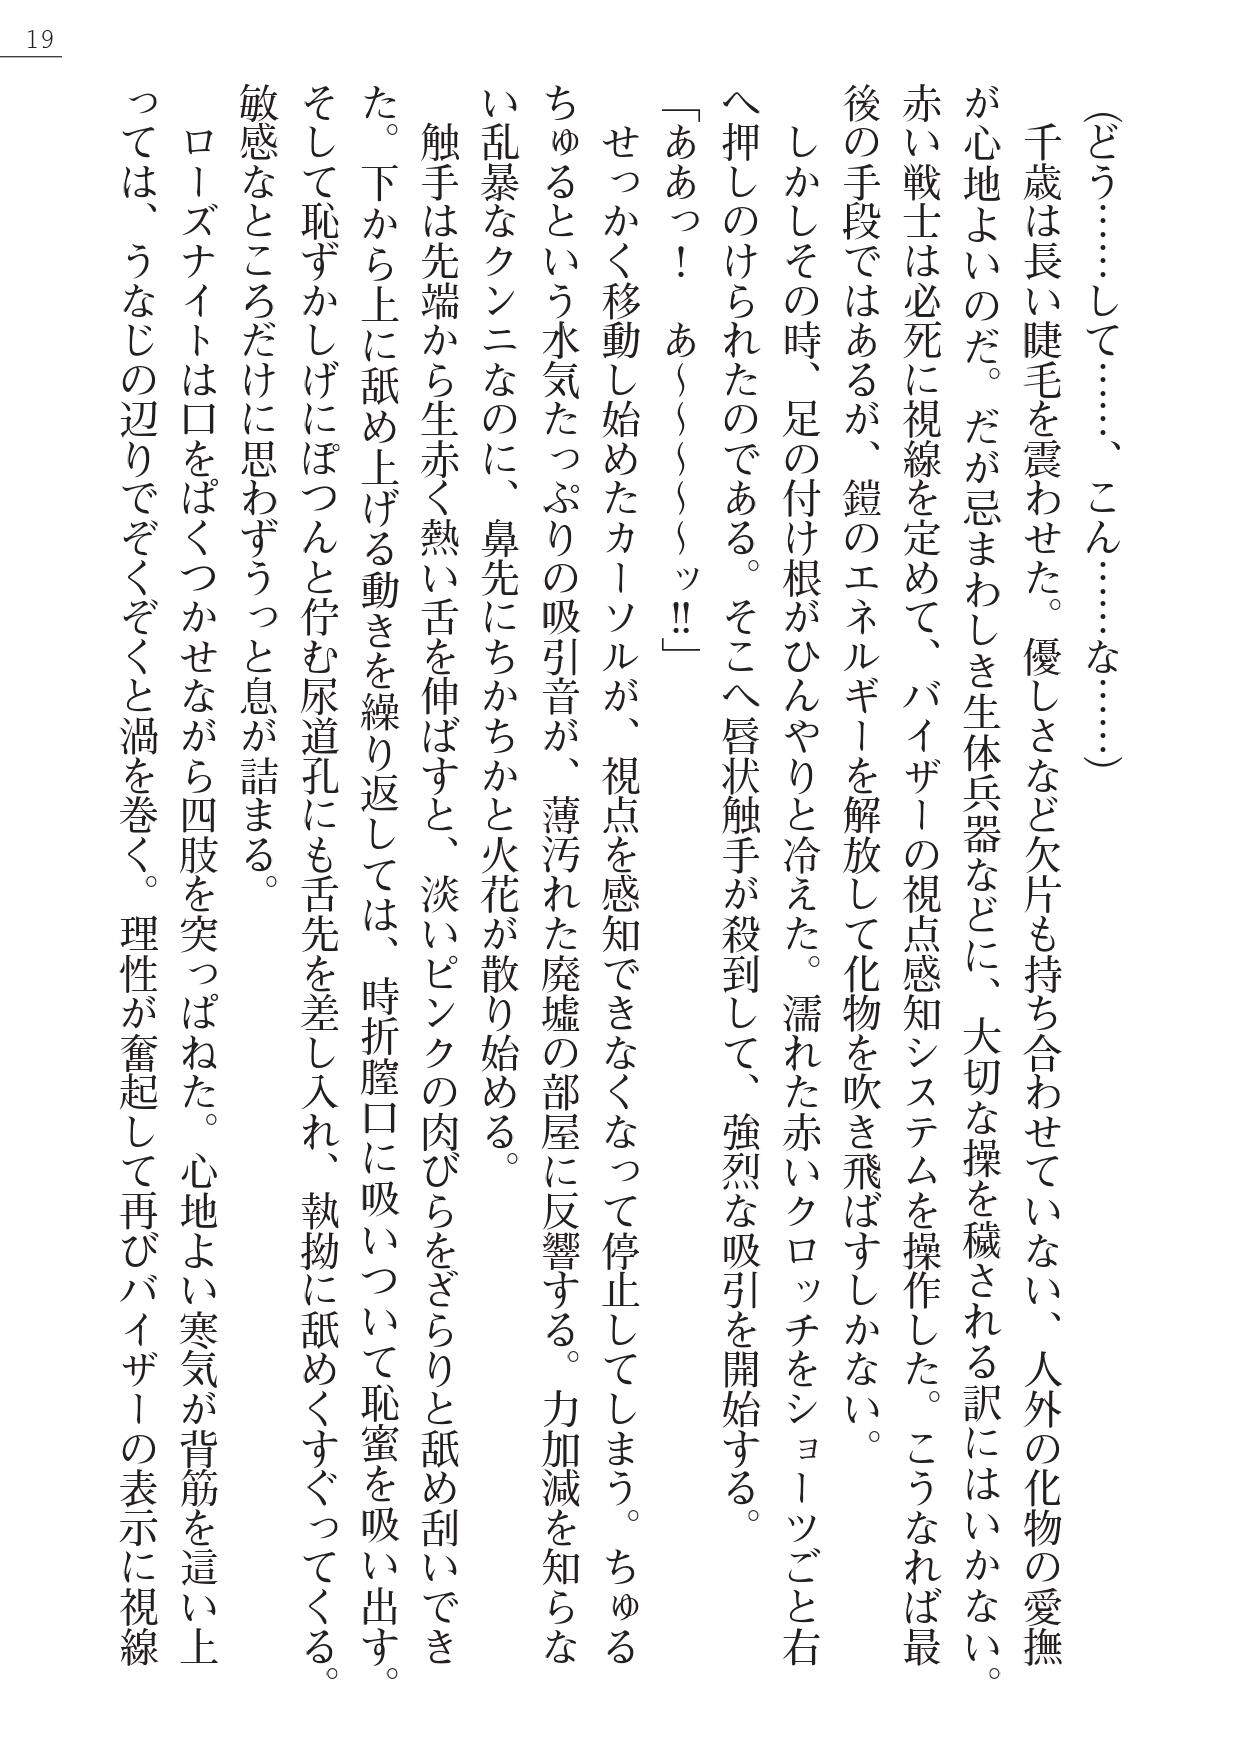 19
(どう……して……、こん……な……)
　千歳は長い睫毛を震わせた。優しさなど欠片も持ち合わせていない、人外の化物の愛撫
が心地よいのだ。だが忌まわしき生体兵器などに、大切な操を穢される訳にはいかない。
赤い戦士は必死に視線を定めて、バイザーの視点感知システムを操作した。こうなれば最
後の手段ではあるが、鎧のエネルギーを解放して化物を吹き飛ばすしかない。
　しかしその時、足の付け根がひんやりと冷えた。濡れた赤いクロッチをショーツごと右
へ押しのけられたのである。そこへ唇状触手が殺到して、強烈な吸引を開始する。
「ああっ！　あ～～～～～ッ!!」
　せっかく移動し始めたカーソルが、視点を感知できなくなって停止してしまう。ちゅる
ちゅるという水気たっぷりの吸引音が、薄汚れた廃墟の部屋に反響する。力加減を知らな
い乱暴なクンニなのに、鼻先にちかちかと火花が散り始める。
　触手は先端から生赤く熱い舌を伸ばすと、淡いピンクの肉びらをざらりと舐め刮いでき
た。下から上に舐め上げる動きを繰り返しては、時折膣口に吸いついて恥蜜を吸い出す。
そして恥ずかしげにぽつんと佇む尿道孔にも舌先を差し入れ、執拗に舐めくすぐってくる。
敏感なところだけに思わずうっと息が詰まる。
　ローズナイトは口をぱくつかせながら四肢を突っぱねた。心地よい寒気が背筋を這い上
っては、うなじの辺りでぞくぞくと渦を巻く。理性が奮起して再びバイザーの表示に視線